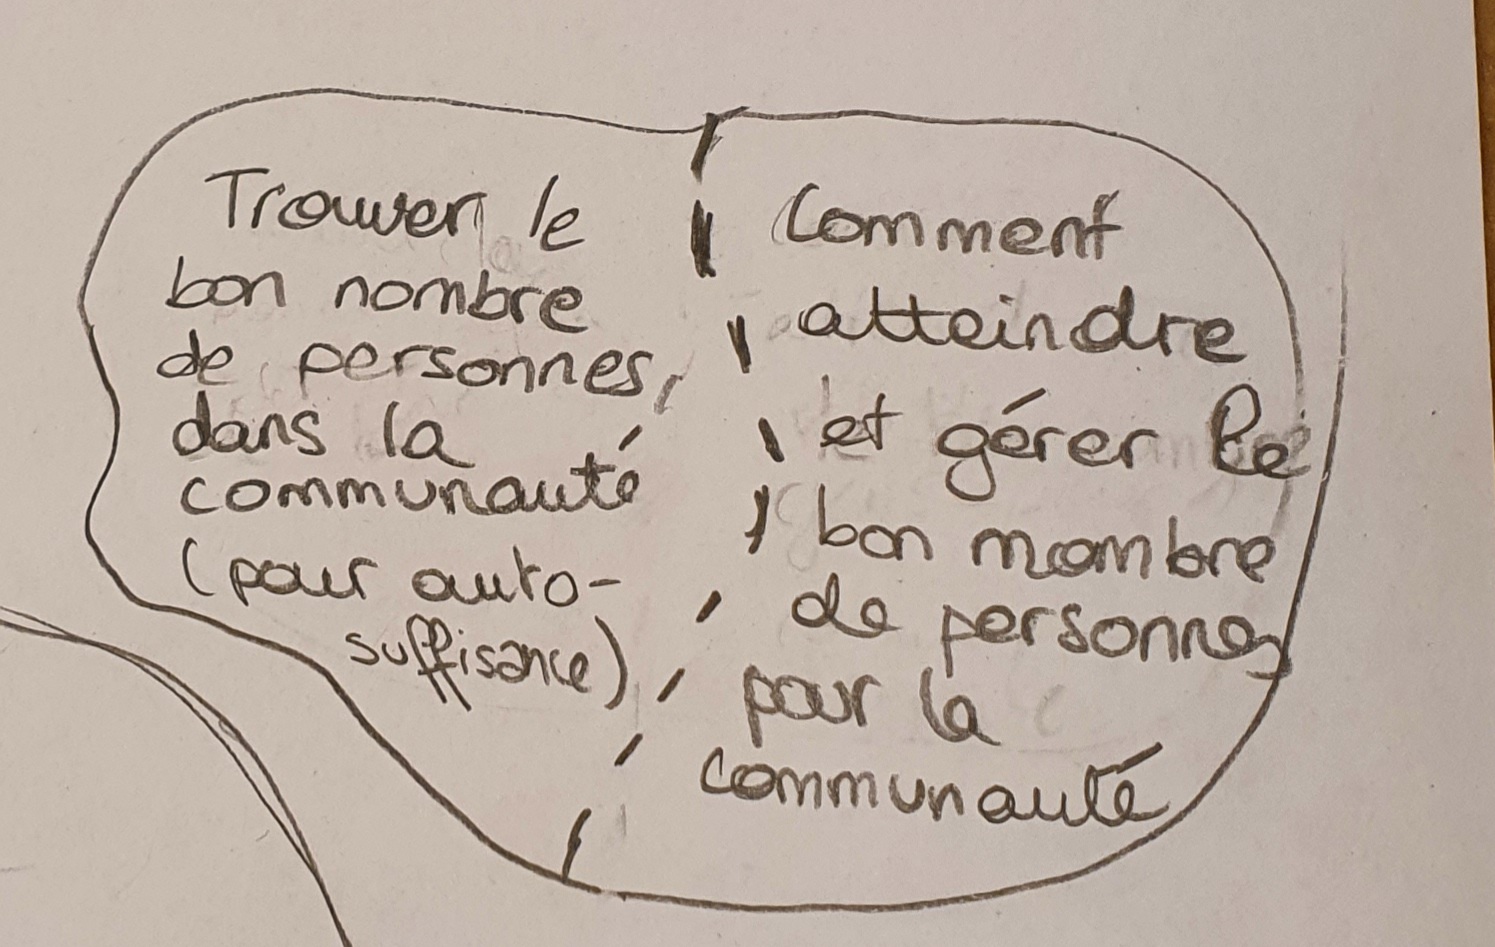 Trouver le
bon nombre
de personnes,
dans la
communauté
(pour auto-
suffisance)
Comment
atteindre
et gérer le
bon nombre
de personnes
pour la
communauté